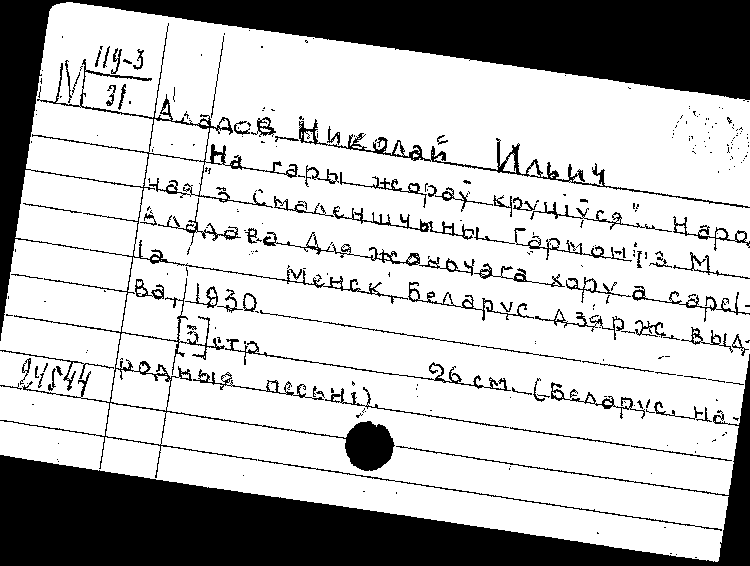 М 119-3
31.
Аладов, Николай Ильич
"На гары жораў круціўся"... Народ-
ная з Смаленшчыны. Гармоніз. М.
Аладава. Для жаночага хору a capel-
la
Менск, Беларус. дзярж. выд-
ва, 1930.
[3] стр.
26 см. (Беларус. на-
родныя песьні).
24544